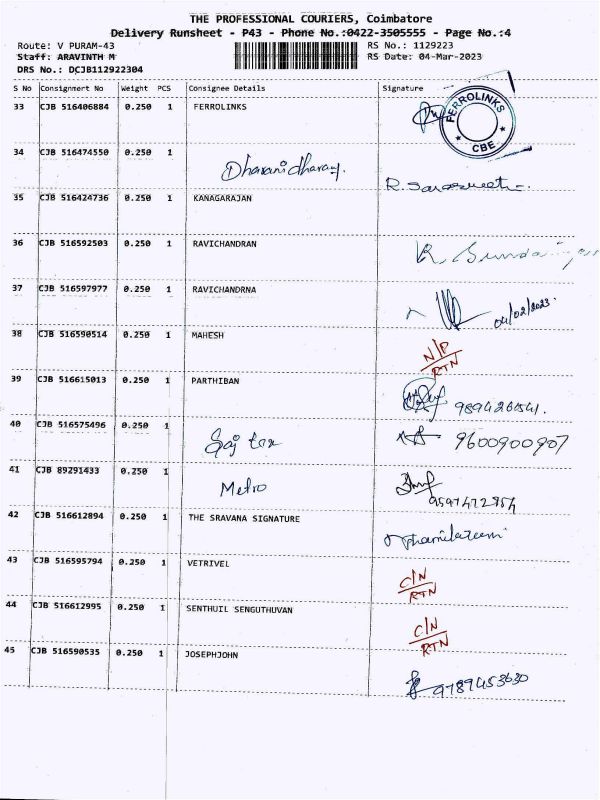 THE PROFESSIONAL COURIERS, Coimbatore
Delivery Runsheet - P43 - Phone No.:0422-3505555 - Page No.:4
Route: V PURAM-43 RS No.: 1129223
Staff: ARAVINTH M RS Date: 04-Mar-2023
DRS No.: DCJB112922304
S No Consignment No Weight PCS Consignee Details Signature
33 CJB 516406884 0.250 1 FERROLINKS
FERROLINKS
CBE
34 CJB 516474550 0.250 1 Dharanidharan.
R. Saraswathi
35 CJB 516424736 0.250 1 KANAGARAJAN
36 CJB 516592503 0.250 1 RAVICHANDRAN
37 CJB 516597977 0.250 1 RAVICHANDRNA
04/02/2023.
38 CJB 516590514 0.250 1 MAHESH N/P
RTN
39 CJB 516615013 0.250 1 PARTHIBAN
40 CJB 516575496 0.250 1 9600900907
41 CJB 89291433 0.250 1 Metro
42 CJB 516612894 0.250 1 THE SRAVANA SIGNATURE
43 CJB 516595794 0.250 1 VETRIVEL C/N
RTN
44 CJB 516612995 0.250 1 SENTHUIL SENGUTHUVAN C/N
RTN
45 CJB 516590535 0.250 1 JOSEPHJOHN
9789453630